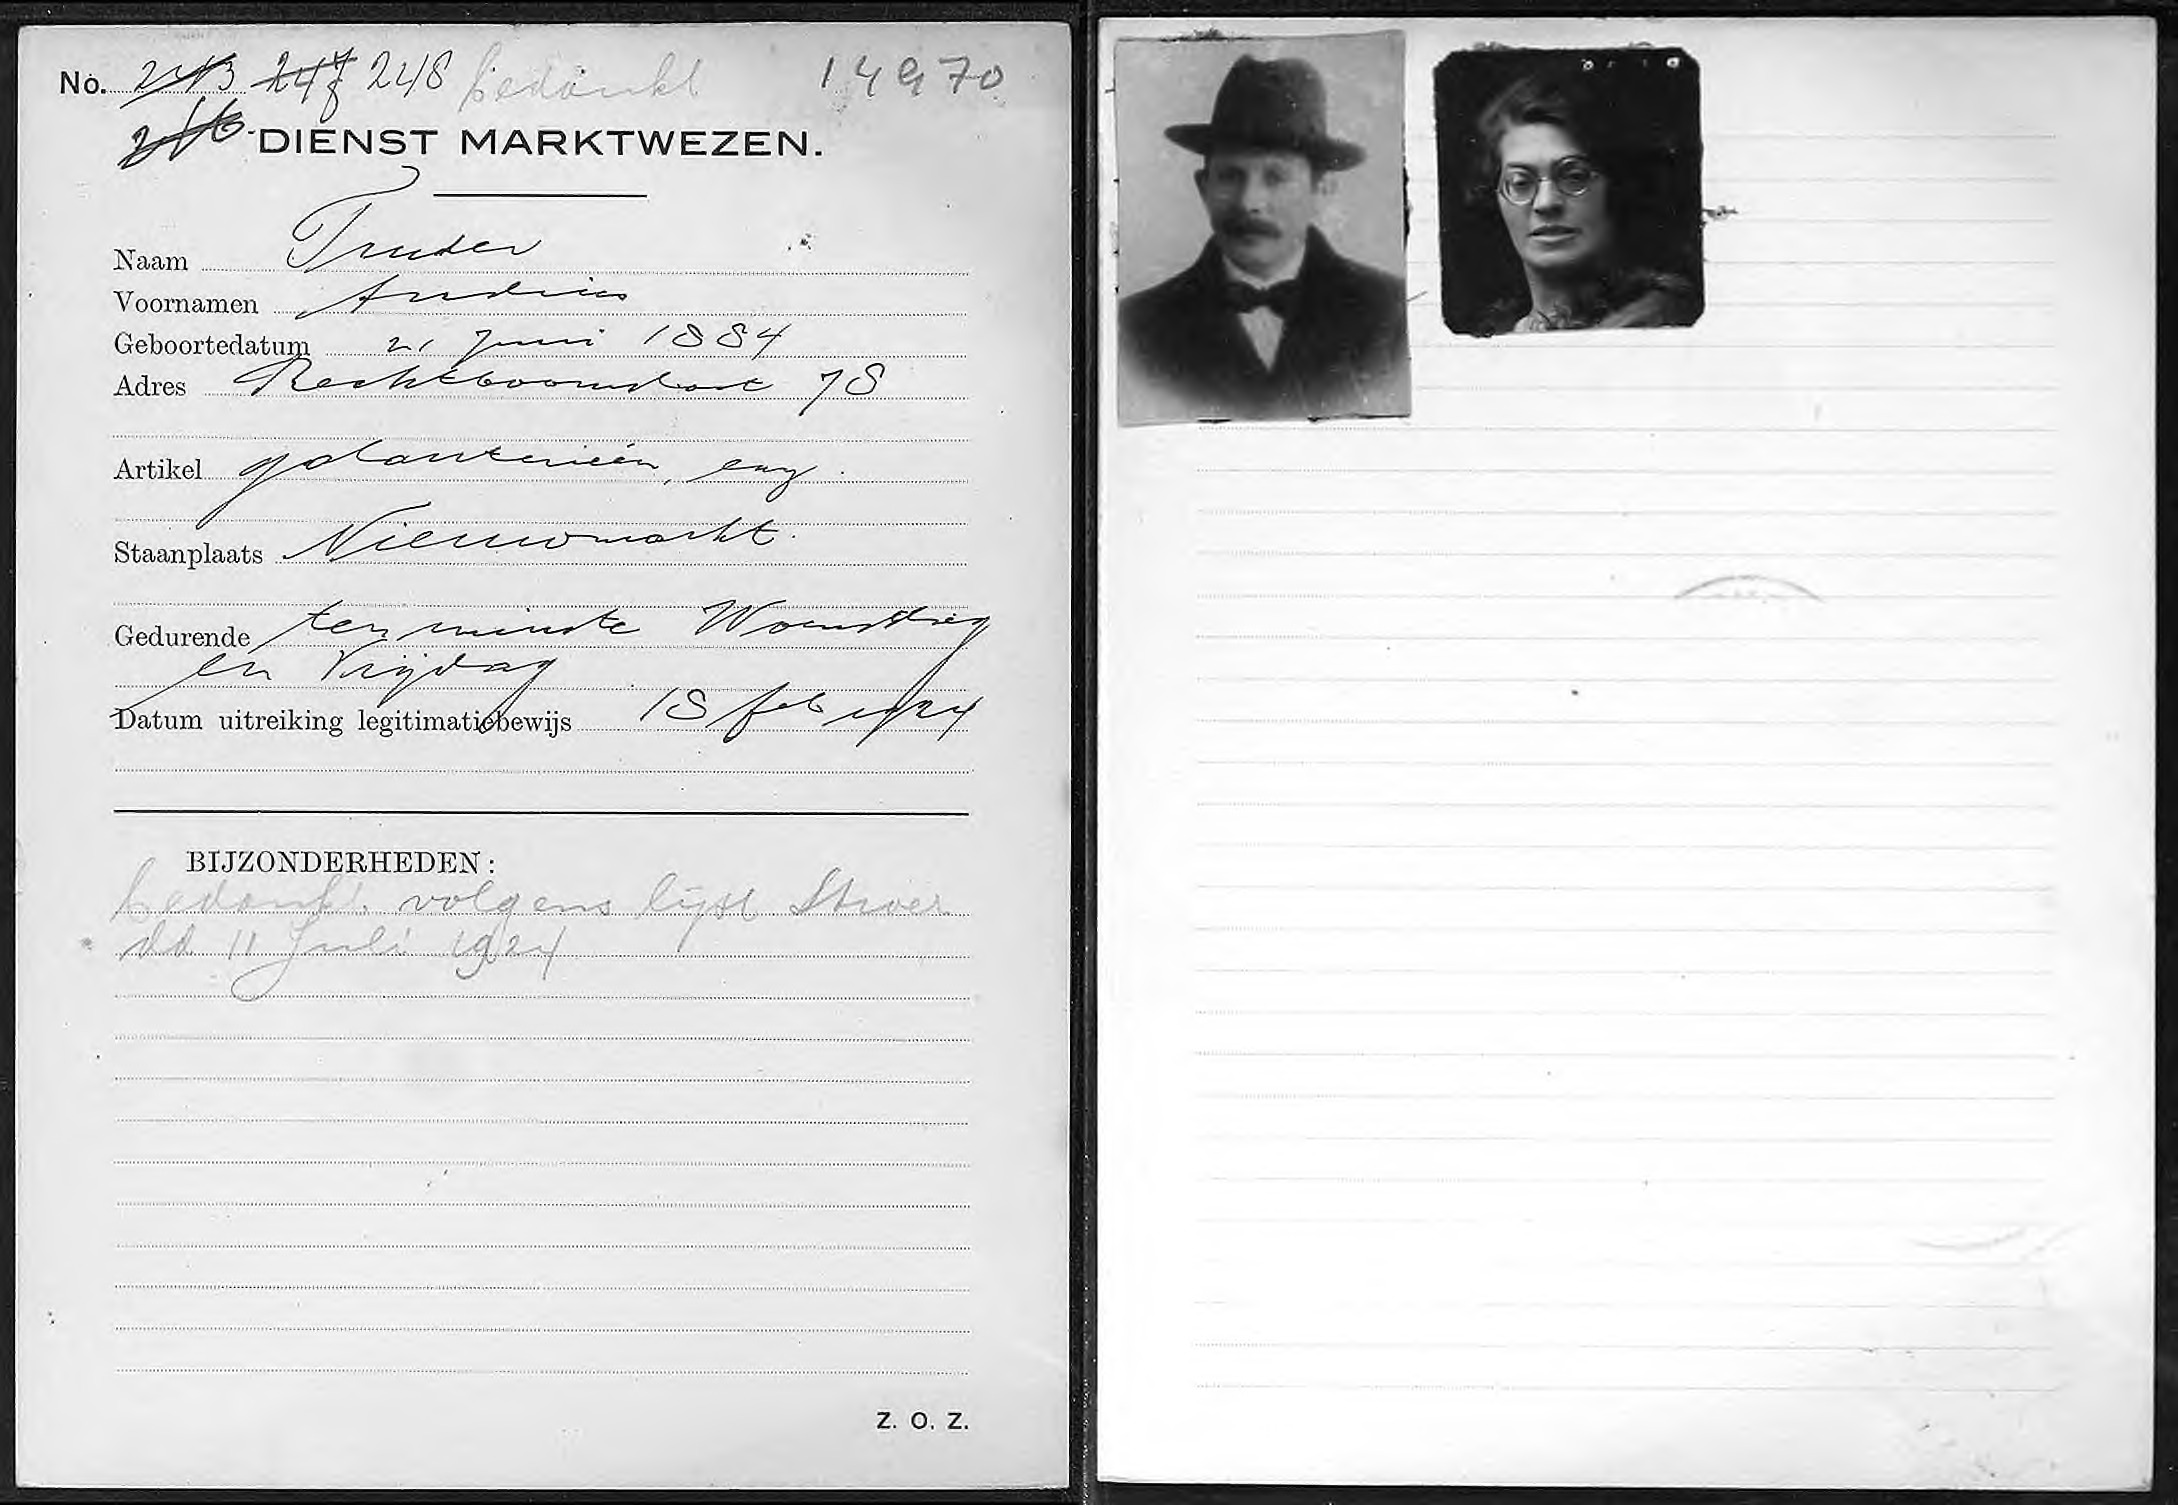 No. 243 247 248 bedankt 14970
246 DIENST MARKTWEZEN.
Naam Truder
Voornamen Andries
Geboortedatum 21 Juni 1884
Adres Rechtboomsloot 78
Artikel galanterieën, enz.
Staanplaats Nieuwmarkt.
Gedurende ten minste Woensdag
en Vrijdag
Datum uitreiking legitimatiebewijs 18 feb 1924
BIJZONDERHEDEN:
bedankt volgens lijst Stroer
dd 11 Juli 1924
Z. O. Z.